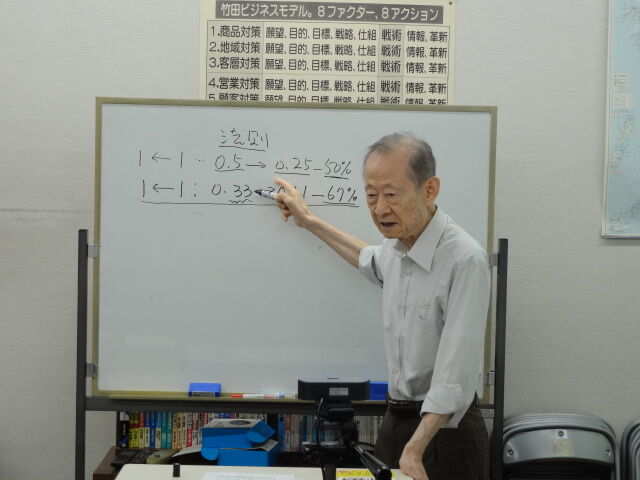 竹田ビジネスモデル。8ファクター、8アクション
1.商品対策 願望、目的、目標、戦略、仕組 戦術 情報、革新
2.地域対策 願望、目的、目標、戦略、仕組 戦術 情報、革新
3.客層対策 願望、目的、目標、戦略、仕組 戦術 情報、革新
4.営業対策 願望、目的、目標、戦略、仕組 戦術 情報、革新
5.顧客対策 願望、目的、目標、戦略、仕組 戦術 情報、革新
法則
1←1…0.5→0.25-50%
1←1:0.33 -67%